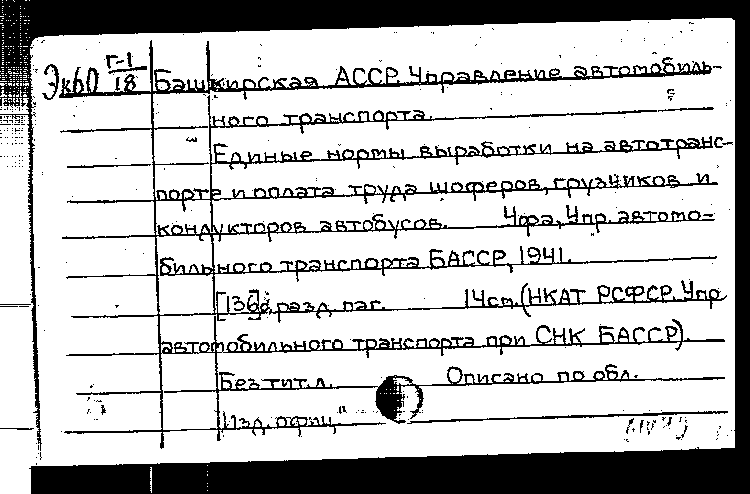 Г-1
Эк60 18 Башкирская АССР. Управление автомобиль-
ного транспорта.
Единые нормы выработки на автотранс-
порте и оплата труда шоферов, грузчиков и
кондукторов автобусов. Уфа, Упр. автомо-
бильного транспорта БАССР, 1941.
[136]с. разд. паг. 14см. (НКАТ РСФСР. Упр
автомобильного транспорта при СНК БАССР).
Без тит. л. Описано по обл.
Изд. офиц."